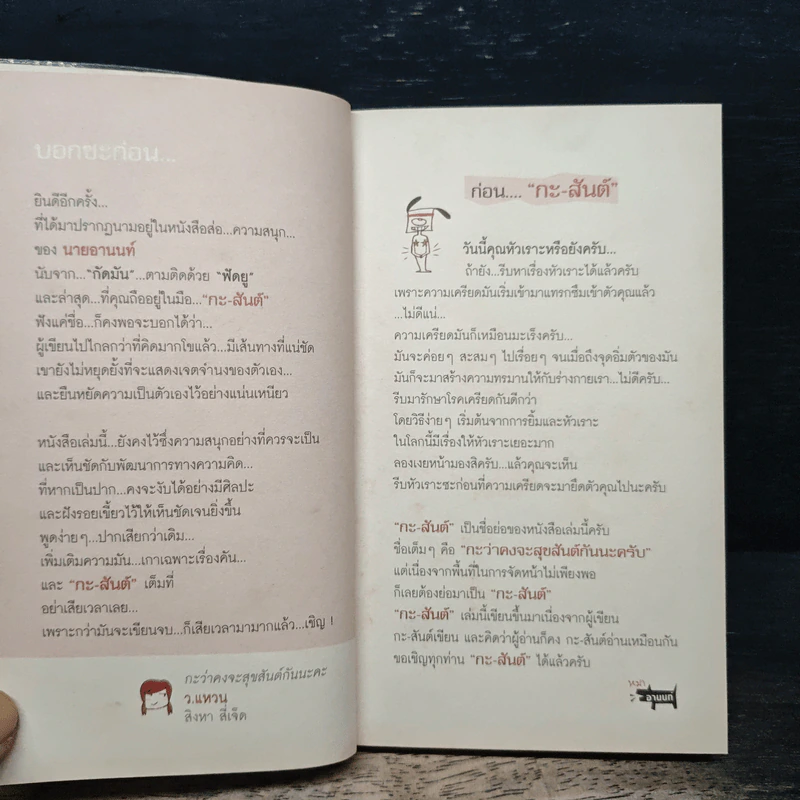 บอกซะก่อน...
ยินดีอีกครั้ง...
ที่ได้มาปรากฏนามอยู่ในหนังสือส่อ...ความสนุก...
ของ นายอานนท์
นับจาก..."กัดมัน"...ตามติดด้วย "ฟัดยู"
และล่าสุด...ที่คุณถืออยู่ในมือ..."กะ-สันต์"
ฟังแค่ชื่อ...ก็คงพอจะบอกได้ว่า...
ผู้เขียนไปไกลกว่าที่คิดมากโขแล้ว...มีเส้นทางที่แน่ชัด
เขายังไม่หยุดยั้งที่จะแสดงเจตจำนงของตัวเอง...
และยืนหยัดความเป็นตัวเองไว้อย่างแน่นเหนียว
หนังสือเล่มนี้...ยังคงไว้ซึ่งความสนุกอย่างที่ควรจะเป็น
และเห็นชัดกับพัฒนาการทางความคิด...
ที่หากเป็นปาก...คงจะงับได้อย่างมีศิลปะ
และฝังรอยเขี้ยวไว้ให้เห็นชัดเจนยิ่งขึ้น
พูดง่ายๆ...ปากเสียกว่าเดิม...
เพิ่มเติมความมัน...เกาเฉพาะเรื่องคัน...
และ "กะ-สันต์" เต็มที่
อย่าเสียเวลาเลย...
เพราะกว่ามันจะเขียนจบ...ก็เสียเวลามามากแล้ว...เชิญ !
กะว่าคงจะสุขสันต์กันนะคะ
ว.แหวน
สิงหา สี่เจ็ด
ก่อน.... "กะ-สันต์"
วันนี้คุณหัวเราะหรือยังครับ...
ถ้ายัง...รีบหาเรื่องหัวเราะได้แล้วครับ
เพราะความเครียดมันเริ่มเข้ามาแทรกซึมเข้าตัวคุณแล้ว
...ไม่ดีแน่...
ความเครียดมันก็เหมือนมะเร็งครับ...
มันจะค่อยๆ สะสมๆ ไปเรื่อยๆ จนเมื่อถึงจุดอิ่มตัวของมัน
มันก็จะมาสร้างความทรมานให้กับร่างกายเรา...ไม่ดีครับ...
รีบมารักษาโรคเครียดกันดีกว่า
โดยวิธีง่ายๆ เริ่มต้นจากการยิ้มและหัวเราะ
ในโลกนี้มีเรื่องให้หัวเราะเยอะมาก
ลองเงยหน้ามองสิครับ...แล้วคุณจะเห็น
รีบหัวเราะซะก่อนที่ความเครียดจะมายึดตัวคุณไปนะครับ
"กะ-สันต์" เป็นชื่อย่อของหนังสือเล่มนี้ครับ
ชื่อเต็มๆ คือ "กะว่าคงจะสุขสันต์กันนะครับ"
แต่เนื่องจากพื้นที่ในการจัดหน้าไม่เพียงพอ
ก็เลยต้องย่อมาเป็น "กะ-สันต์"
"กะ-สันต์" เล่มนี้เขียนขึ้นมาเนื่องจากผู้เขียน
กะ-สันต์เขียน และคิดว่าผู้อ่านก็คง กะ-สันต์อ่านเหมือนกัน
ขอเชิญทุกท่าน "กะ-สันต์" ได้แล้วครับ
หมา
อานนท์